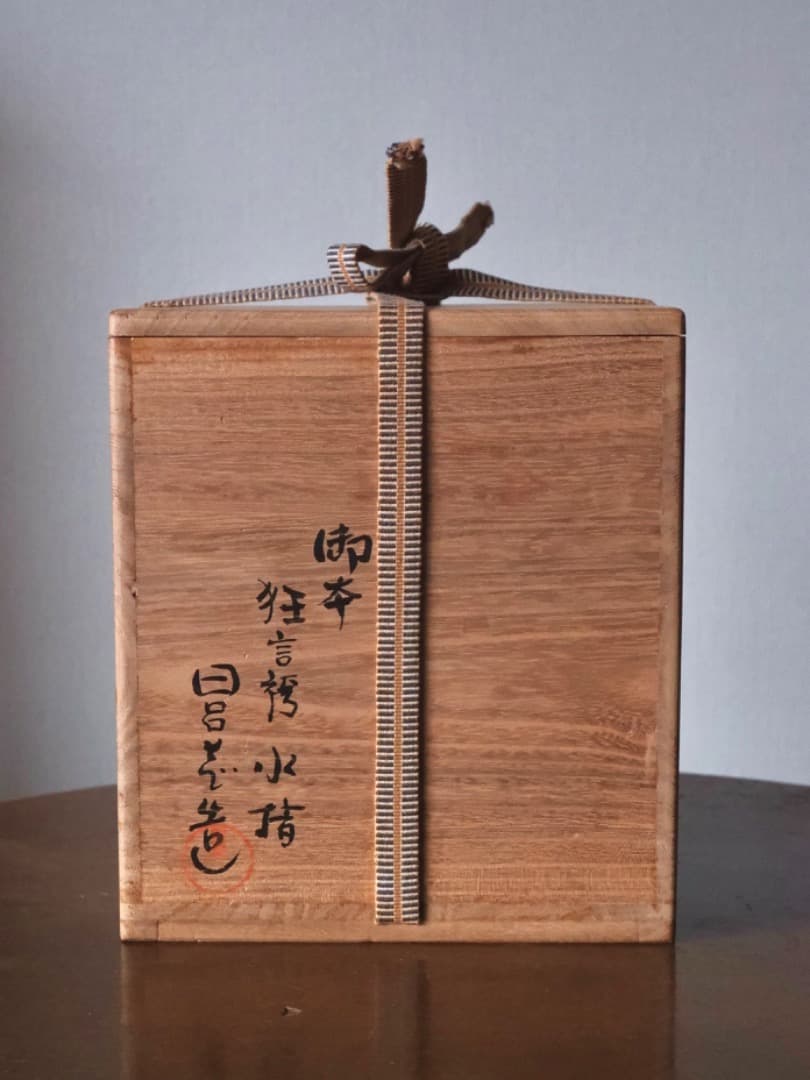 御本
狂言袴 水指
造